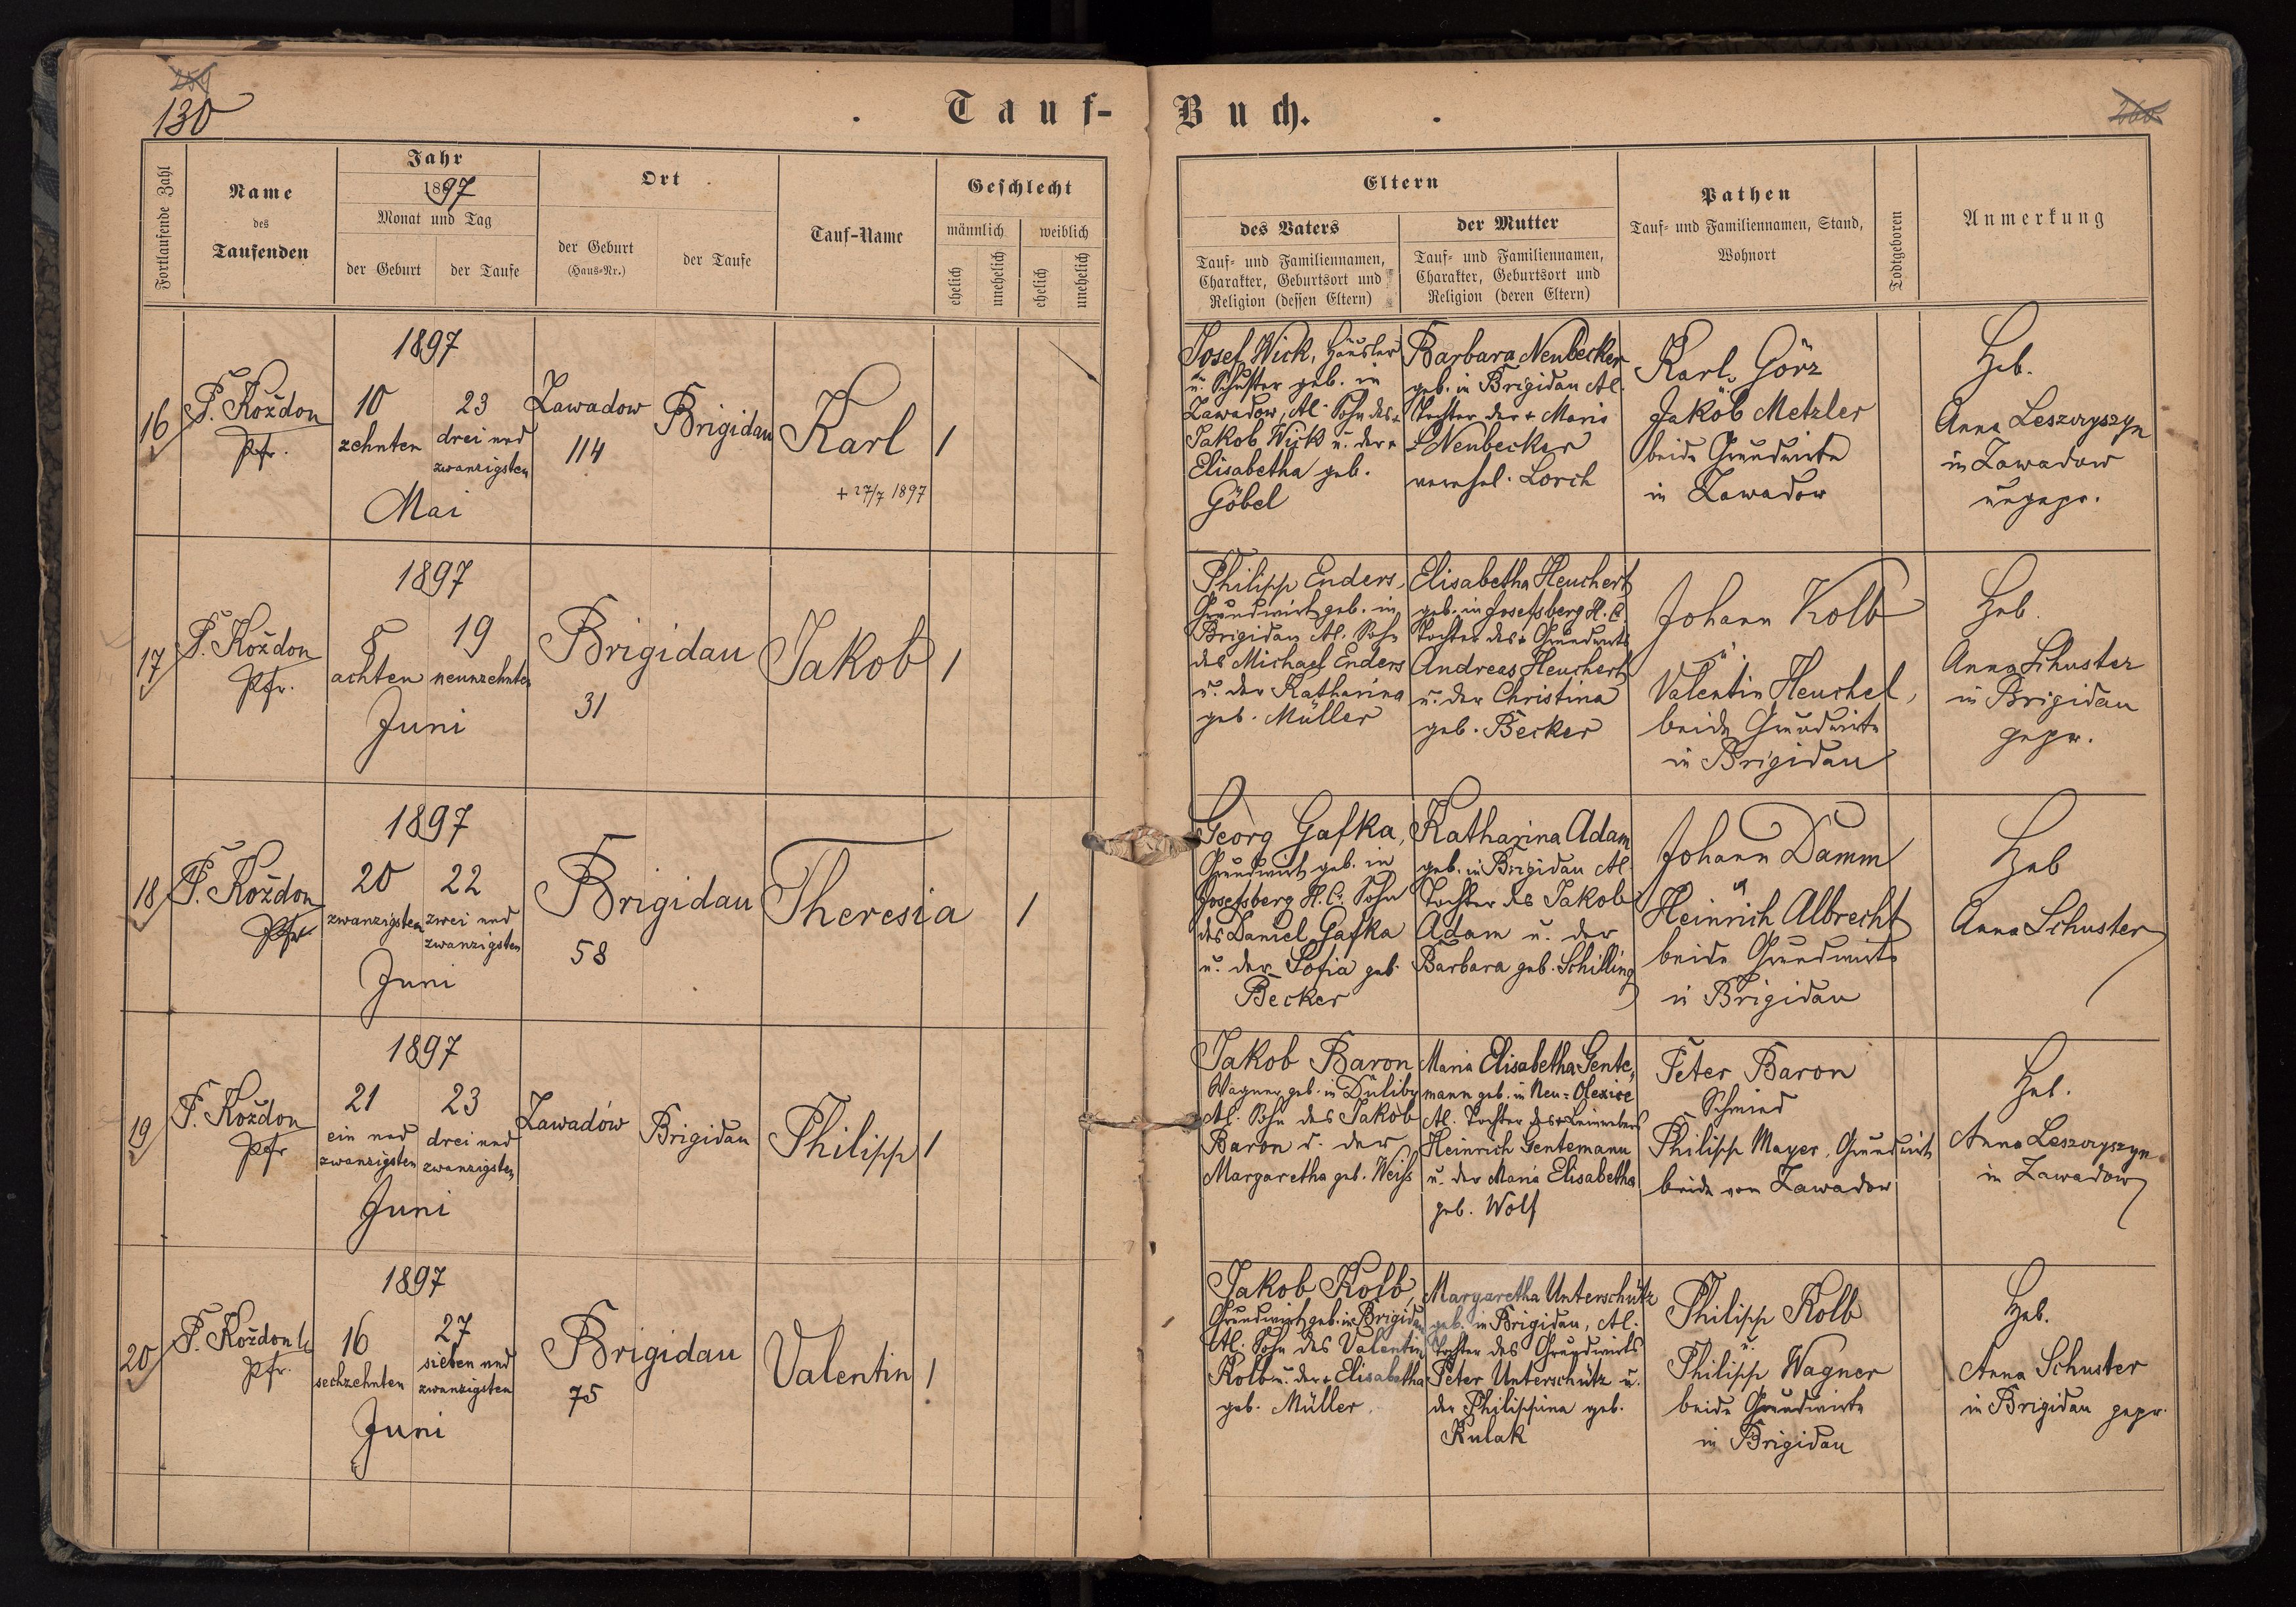 130
Tauf-Buch.
Fortlaufende Zahl
Name
des
Taufenden
Jahr
1897
Monat und Tag
der Geburt
der Taufe
Ort
der Geburt
(Haus-Nr.)
der Taufe
Tauf-Name
Geschlecht
männlich
weiblich
ehelich
unehelich
ehelich
unehelich
Eltern
des Vaters
Tauf- und Familiennamen,
Charakter, Geburtsort und
Religion (dessen Eltern)
der Mutter
Tauf- und Familiennamen,
Charakter, Geburtsort und
Religion (deren Eltern)
Pathen
Tauf- und Familiennamen, Stand,
Wohnort
Todtgeboren
Anmerkung
16
P. Koždon
Pfr.
1897
10
zehnten
23
drei und
zwanzigsten
Mai
Zawadow
114
Brigidau
Karl
+ 27/7 1897
1
Josef Wick, Häusler
u. Schuster geb. in
Zawadow, Al. Sohn des +
Jakob Wick u. der +
Elisabetha geb.
Göbel
Barbara Neubecker
geb. in Brigidau Al.
Tochter der + Maria
Neubecker
verehel. Lorch
Karl Görz
u.
Jakob Metzler
beide Grundwirte
in Zawadow
Heb.
Anna Leszczyszyn
in Zawadow
ungepr.
17
P. Koždon
Pfr.
1897
8
achten
19
neunzehnten
Juni
Brigidau
31
Jakob
1
Philipp Enders,
Grundwirt geb. in
Brigidau Al. Sohn
des Michael Enders
u. der Katharina
geb. Müller
Elisabetha Heuchert
geb. in Josefsberg H. C.
Tochter des + Grundwirts
Andreas Heuchert
u. der Christina
geb. Becker
Johann Kolb
u.
Valentin Heuchel,
beide Grundwirte
in Brigidau
Heb.
Anna Schuster
in Brigidau
gepr.
18
P. Koždon
Pfr
1897
20
zwanzigsten
22
zwei und
zwanzigsten
Juni
Brigidau
58
Theresia
1
Georg Gafka,
Grundwirt geb. in
Josefsberg H. C. Sohn
des Daniel Gafka
u. der Sofia geb.
Becker
Katharina Adam
geb. in Brigidau Al.
Tochter des Jakob
Adam u. der
Barbara geb. Schilling
Johann Damm
u
Heinrich Albrecht
beide Grundwirte
in Brigidau
Heb
Anna Schuster
19
P. Koždon
Pfr
1897
21
ein und
zwanzigsten
23
drei und
zwanzigsten
Juni
Zawadów
Brigidau
Philipp
1
Jakob Baron
Wagner, geb. in Duliby
Al. Sohn des Jakob
Baron u. der
Margaretha geb. Weiß
Maria Elisabetha Gente-
mann geb. in Neu-Olexice
Al. Tochter des + Leinwebers
Heinrich Gentemann
u. der Maria Elisabetha
geb. Wolf
Peter Baron
Schmied
Philipp Mayer, Grundwirt
beide von Zawadow
Heb.
Anna Leszczyszyn
in Zawadow
20
P. Koždon
Pfr.
1897
16
sechzehnten
27
sieben und
zwanzigsten
Juni
Brigidau
75
Valentin
1
Jakob Kolb,
Grundwirt geb. in Brigidau
Al. Sohn des Valentin
Kolb u. der + Elisabetha
geb. Müller.
Margaretha Unterschütz
geb. in Brigidau, Al.
Tochter des Grundwirts
Peter Unterschütz u.
der Philippina geb.
Kulak
Philipp Kolb
u.
Philipp Wagner
beide Grundwirte
in Brigidau
Heb.
Anna Schuster
in Brigidau gepr.